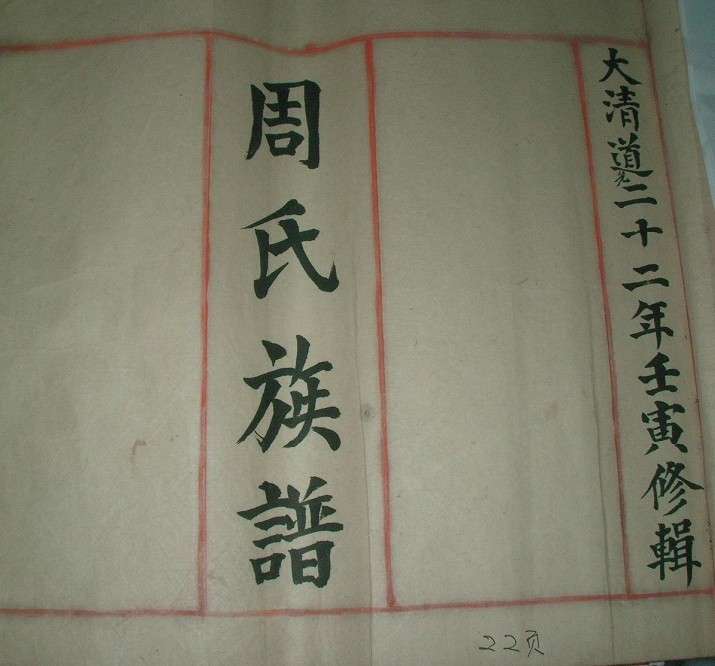 大清道光二十二年壬寅修輯
周氏族譜
22页